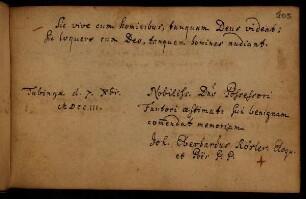 203
Sic vive cum hominibus, tanquam Deus videat;
Sic loquere cum Deo, tanquam homines audiant.
Tubingæ d. 7. Xbr.
MDCCIII.
Nobiliss. Dno Possessori
Fautori æstimat. sui benignam
comendat memoriam
Joh. Eberhardus Rösler, Eloqu.
et Poës. P. P.